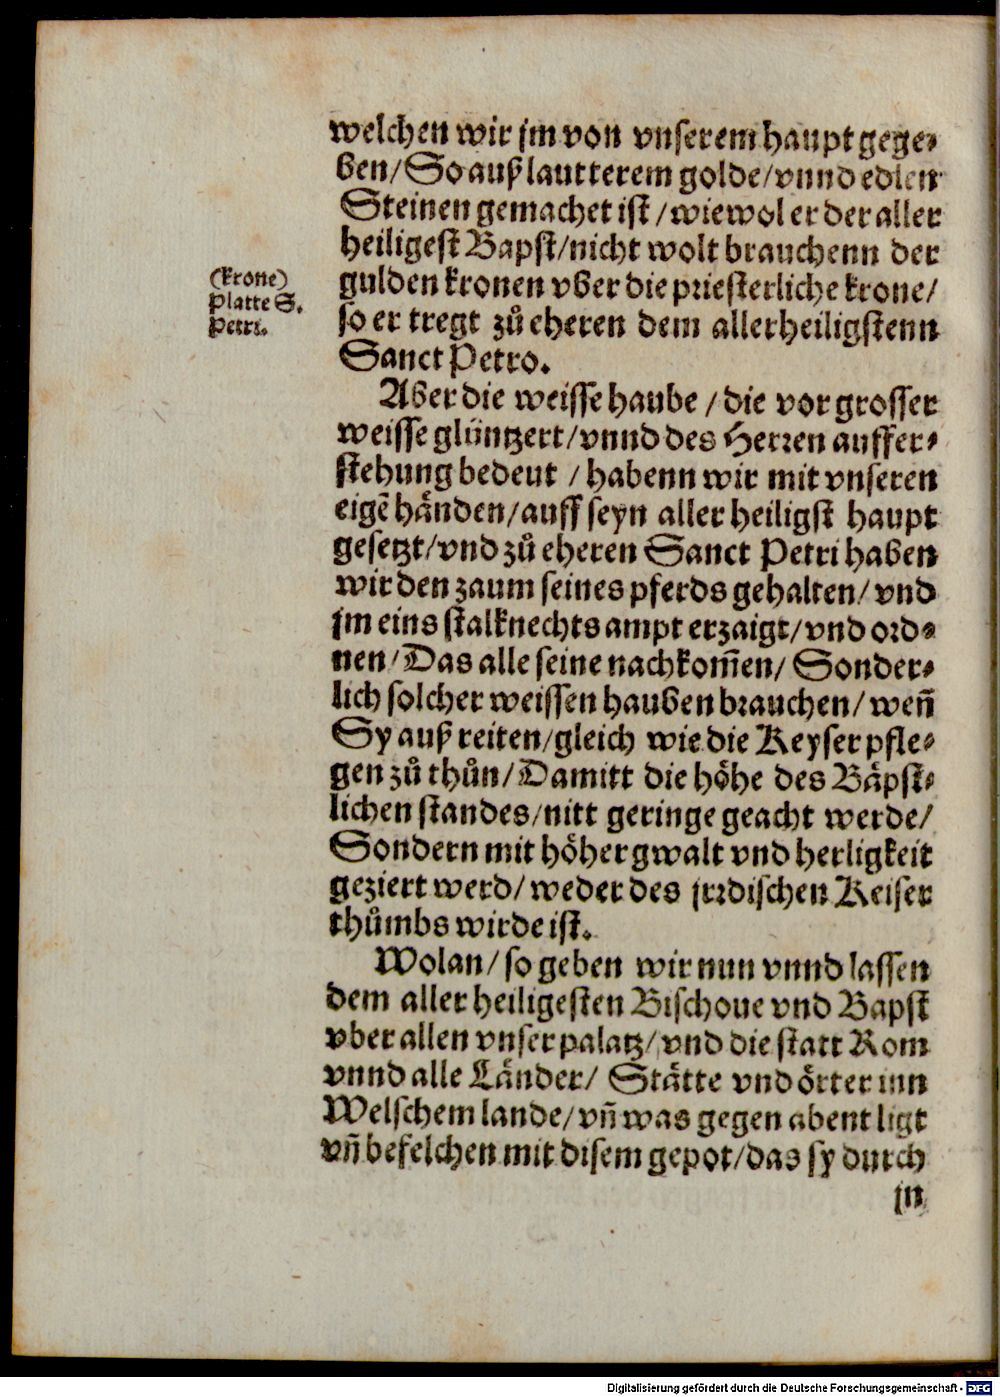 welchen wir jm von vnserem haupt gege⸗
ben/So auß lautterem golde/vnnd edlen
Steinen gemachet ist/wiewol er der aller
heiligest Bapst/nicht wolt brauchenn der
gulden kronen vber die priesterliche krone/
so er tregt zů eheren dem allerheiligstenn
Sanct Petro.
(krone)
Platte S.
Petri.
Aber die weisse haube/die vor grosser
weisse glüntzert/vnnd des Herren auffer⸗
stehung bedeut/habenn wir mit vnseren
eigē händen/auff seyn aller heiligst haupt
gesetzt/vnd zů eheren Sanct Petri haben
wir den zaum seines pferds gehalten/vnd
jm eins stalknechts ampt erzaigt/vnd ord⸗
nen/Das alle seine nachkom̄en/Sonder⸗
lich solcher weissen hauben brauchen/wen̄
Sy auß reiten/gleich wie die Keyser pfle⸗
gen zů thůn/Damitt die höhe des Bäpst⸗
lichen standes/nitt geringe geacht werde/
Sondern mit höher gwalt vnd herligkeit
geziert werd/weder des jrrdischen Keiser
thůmbs wirde ist.
Wolan/so geben wir nun vnnd lassen
dem aller heiligesten Bischoue vnd Bapst
vber allen vnser palatz/vnd die statt Rom
vnnd alle Länder/Stätte vnd örter inn
Welschem lande/vn̄ was gegen abent ligt
vn̄ befelchen mit disem gepot/das sy durch
jn
Digitalisierung gefördert durch die Deutsche Forschungsgemeinschaft - DFG